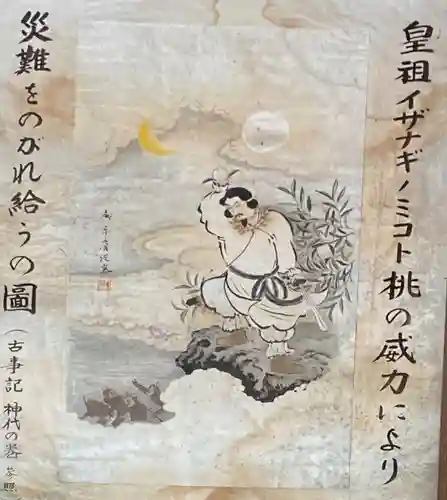 皇祖イザナギノミコト桃の威力により
災難をのがれ給うの圖
(古事記 神代の巻 参照